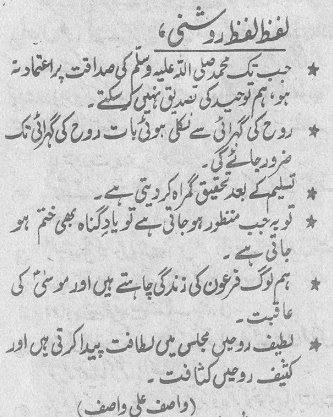 لفظ لفظ روشنی،
★ جب تک محمد صلی اللہ علیہ وسلم کی صداقت پر اعتماد نہ
ہو، ہم توحید کی تصدیق نہیں کر سکتے۔
★ روح کی گہرائی سے نکلی ہوئی بات روح کی گہرائی تک
ضرور جائے گی۔
★ تسلیم کے بعد تحقیق گمراہ کر دیتی ہے۔
★ توبہ جب منظور ہو جاتی ہے تو یادِ گناہ بھی ختم ہو
جاتی ہے۔
★ ہم لوگ فرعون کی زندگی چاہتے ہیں اور موسیٰؑ کی
عاقبت۔
★ لطیف روحیں مجلس میں لطافت پیدا کرتی ہیں اور
کثیف روحیں کثافت۔
(واصف علی واصف)